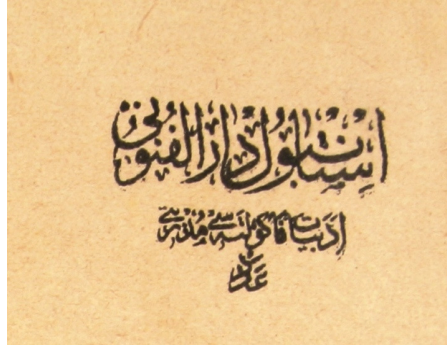 استانبول دار الفنونی
ادبیات فاکولته سی مدرسی
عدد